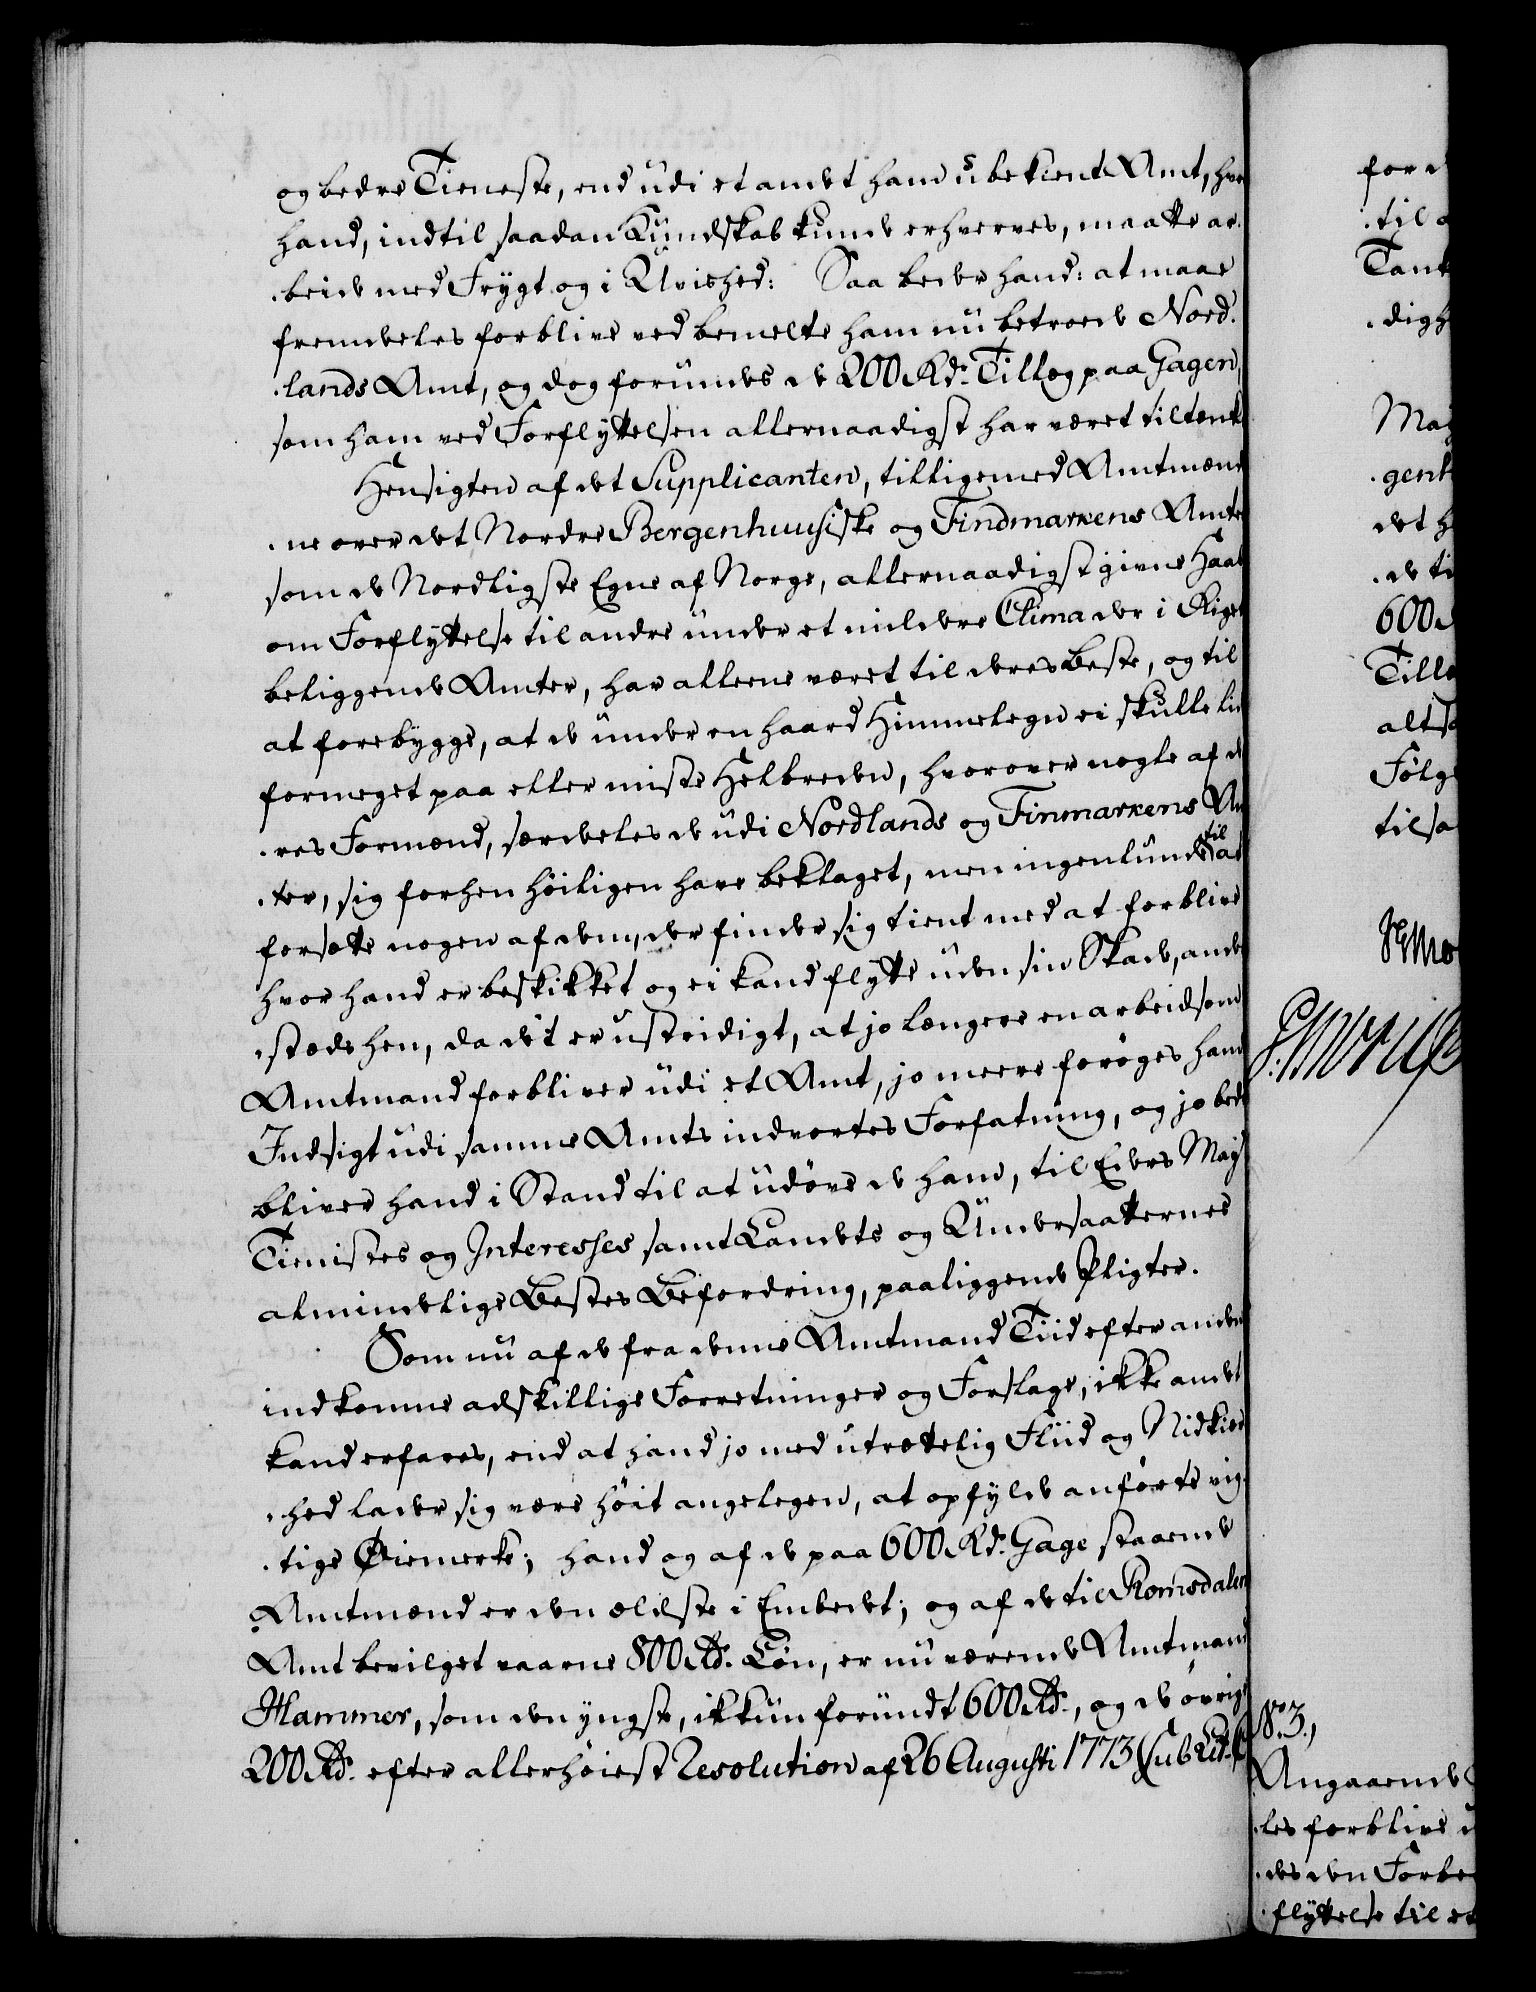 og bedre Tieneste, end udi et andet ham ubekient Amt, hvor
hand, indtil saadan Kundskab kunde erhverves, maatte ar-
beide med Frygt og i Uvished: Saa beder hand: at maae
fremdeles forblive ved bemelte ham nu betroede Nord-
lands Amt, og dog forundes de 200 Rdr. Tillæg paa Gagen,
som ham ved Forflyttelsen allernaadigst har været tiltænkt
Hensigten af det Supplicanten, tilligemed Amtmænd-
ne over det Nordre Bergenhuusiske og Findmarkens Amter
som de Nordligste Egne af Norge, allernaadigst givne Haab
om Forflyttelse til andre under et mildere Clima der i Riget
beliggende Amter, har alleene været til deres beste, og til
at forebygge, at de under en haard Himmelegn ei skulle lide
formeget paa eller miste Helbreden, hvorover nogle af de-
res Formænd, særdeles de udi Nordlands og Finmarkens Am-
ter, sig forhen høiligen have beklaget, men ingenlunde til at
forsætte nogen af dem, der finder sig tient med at forblive
hvor hand er beskikket og ei kand flytte uden sin Skade, andet-
steds hen, da det er ustridigt, at jo længere en arbeidsom
Amtmand forbliver udi et Amt, jo meere forøges hans
Indsigt udi samme Amts indvortes Forfatning, og jo bedre
bliver hand i Stand til at udøve de ham, til Eders Mayts
Tienistes og Interesses samt Landets og Undersaatternes
almindelige Bestes Befordring, paaliggende Pligter.
Som nu af de fra denne Amtmand Tiid efter anden
indkomne adskillige Forretninger og Forslage, ikke andet
kand erfares, end at hand jo med utrættelig Fliid og Nidkier-
hed lader sig være høit angelegen, at opfylde anførte vig-
tige Øiemerke; hand og af de paa 600 Rdr. Gage staaende
Amtmænd er den ældste i Embedet; og af de til Romsdalens
Amt bevilget vaarne 800 Rdr. Løn, er nuværende Amtmand
Hammer, som den yngste, ikkun forundt 600 Rdr., og de øvrige
200 Rdr. efter allerhøiest Resolution af 26 Augusti 1773 (sub Lit. C
for d
til
Tank
digh
May
gent
det h
de ti
600
Tillæ
altsa
Følge
tilsa
No. 3.,
Angaaende
les forblive u
des den Forbe
flyttelse til et